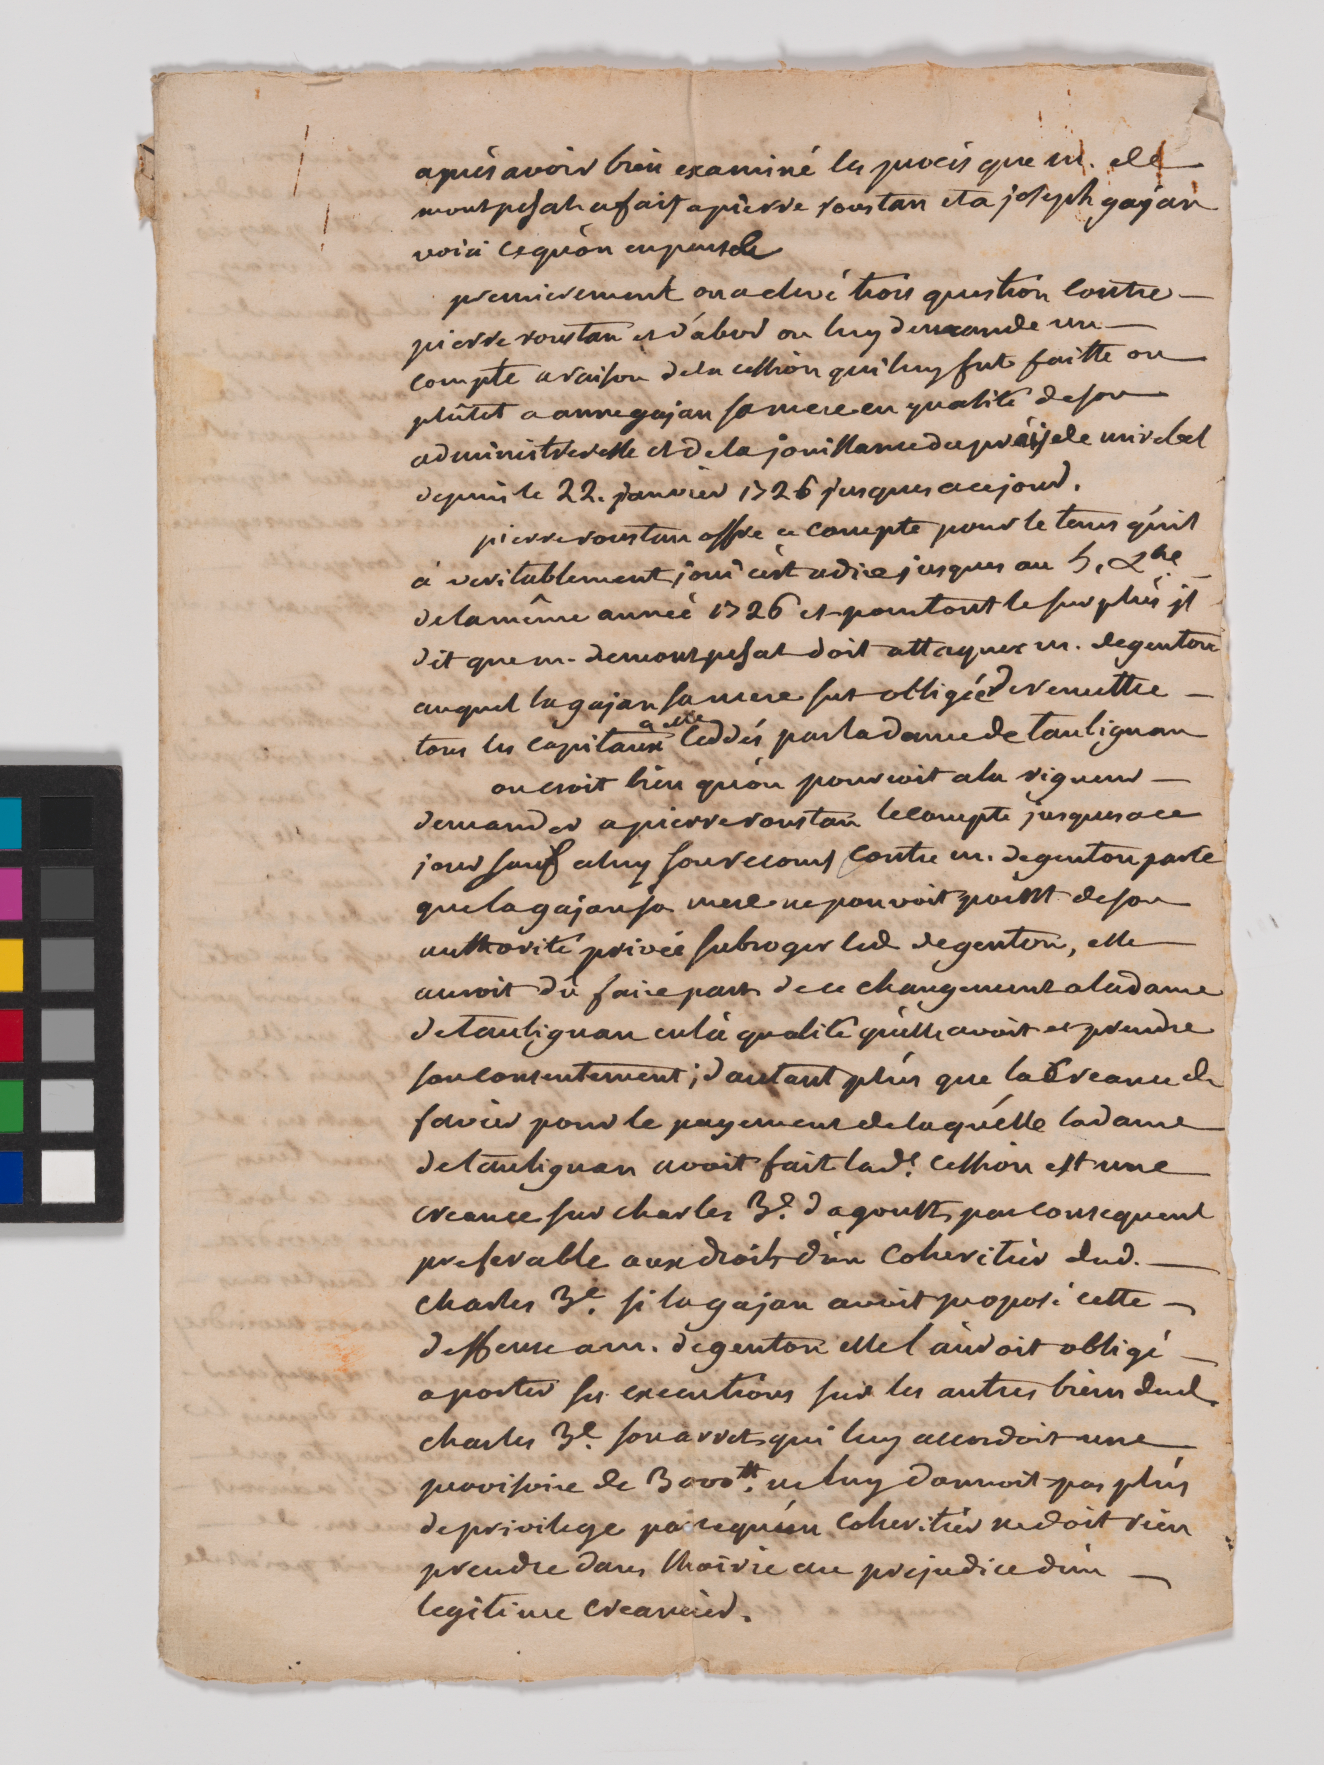 apuès avoir bien examiné les procès que m. de
montpesat a fait a pierre roustan et a joseph gajan
voicì cequòn enpense
premierement on a elevé trois question contre
pierre roustan et d'abord on luy demande un
compte araison dela cession qui luy fut faitte ou
plûtot a anne gajan samere en qualité deson
administreresse et dela jouissance du pré de mirebel
depuis le 22. janvier 1726 jusques acejour.
pierre roustan offre ce compte pour le tems qu'il
à veritablement joui cèst adire jusques au 5. xbre
dela même annéé 1726 et pour tout le surplùs jl
dit que m. demontpesat doit attaquer m. degenton
auquel la gajan samere fut obligéé deremettre
tous les capitaux a elle ceddés par ladame de taulignan
on croit bien qu'on pourroit ala rigueur
demander apierre roustan lecompte jusques ace
jour sauf aluy son recours contre m. degenton parce
que la gajan sa mere ne pouvoit point deson
authorité privéé subroger led degenton, elle
auroit dù faire part de ce changement aladame
detaulignan enlà qualité qu'elle avoit et prendre
son consentement; dautant plùs que la creance de
favier pour le payement delaquélle ladame
detaulignan avoit fait lade. cession est une
creance sur charles 3e. dagoult, par consequent
preferable aux droits d'ùn coheritièr dud.
charles 3e. si la gajan avoit proposé cette
deffense a m. degenton elle l'auroit obligé
aporter ses executions sur les autres biens dud
charles 3e. son arret qui luy accordoit une
provisoire de 3000tt. ne luy donnoit pas plùs
deprivilege parcequ'ùn coheritièr nedoit rièn
prendre dans lhoirie au prejudice d'ùn
legitime creancièr.